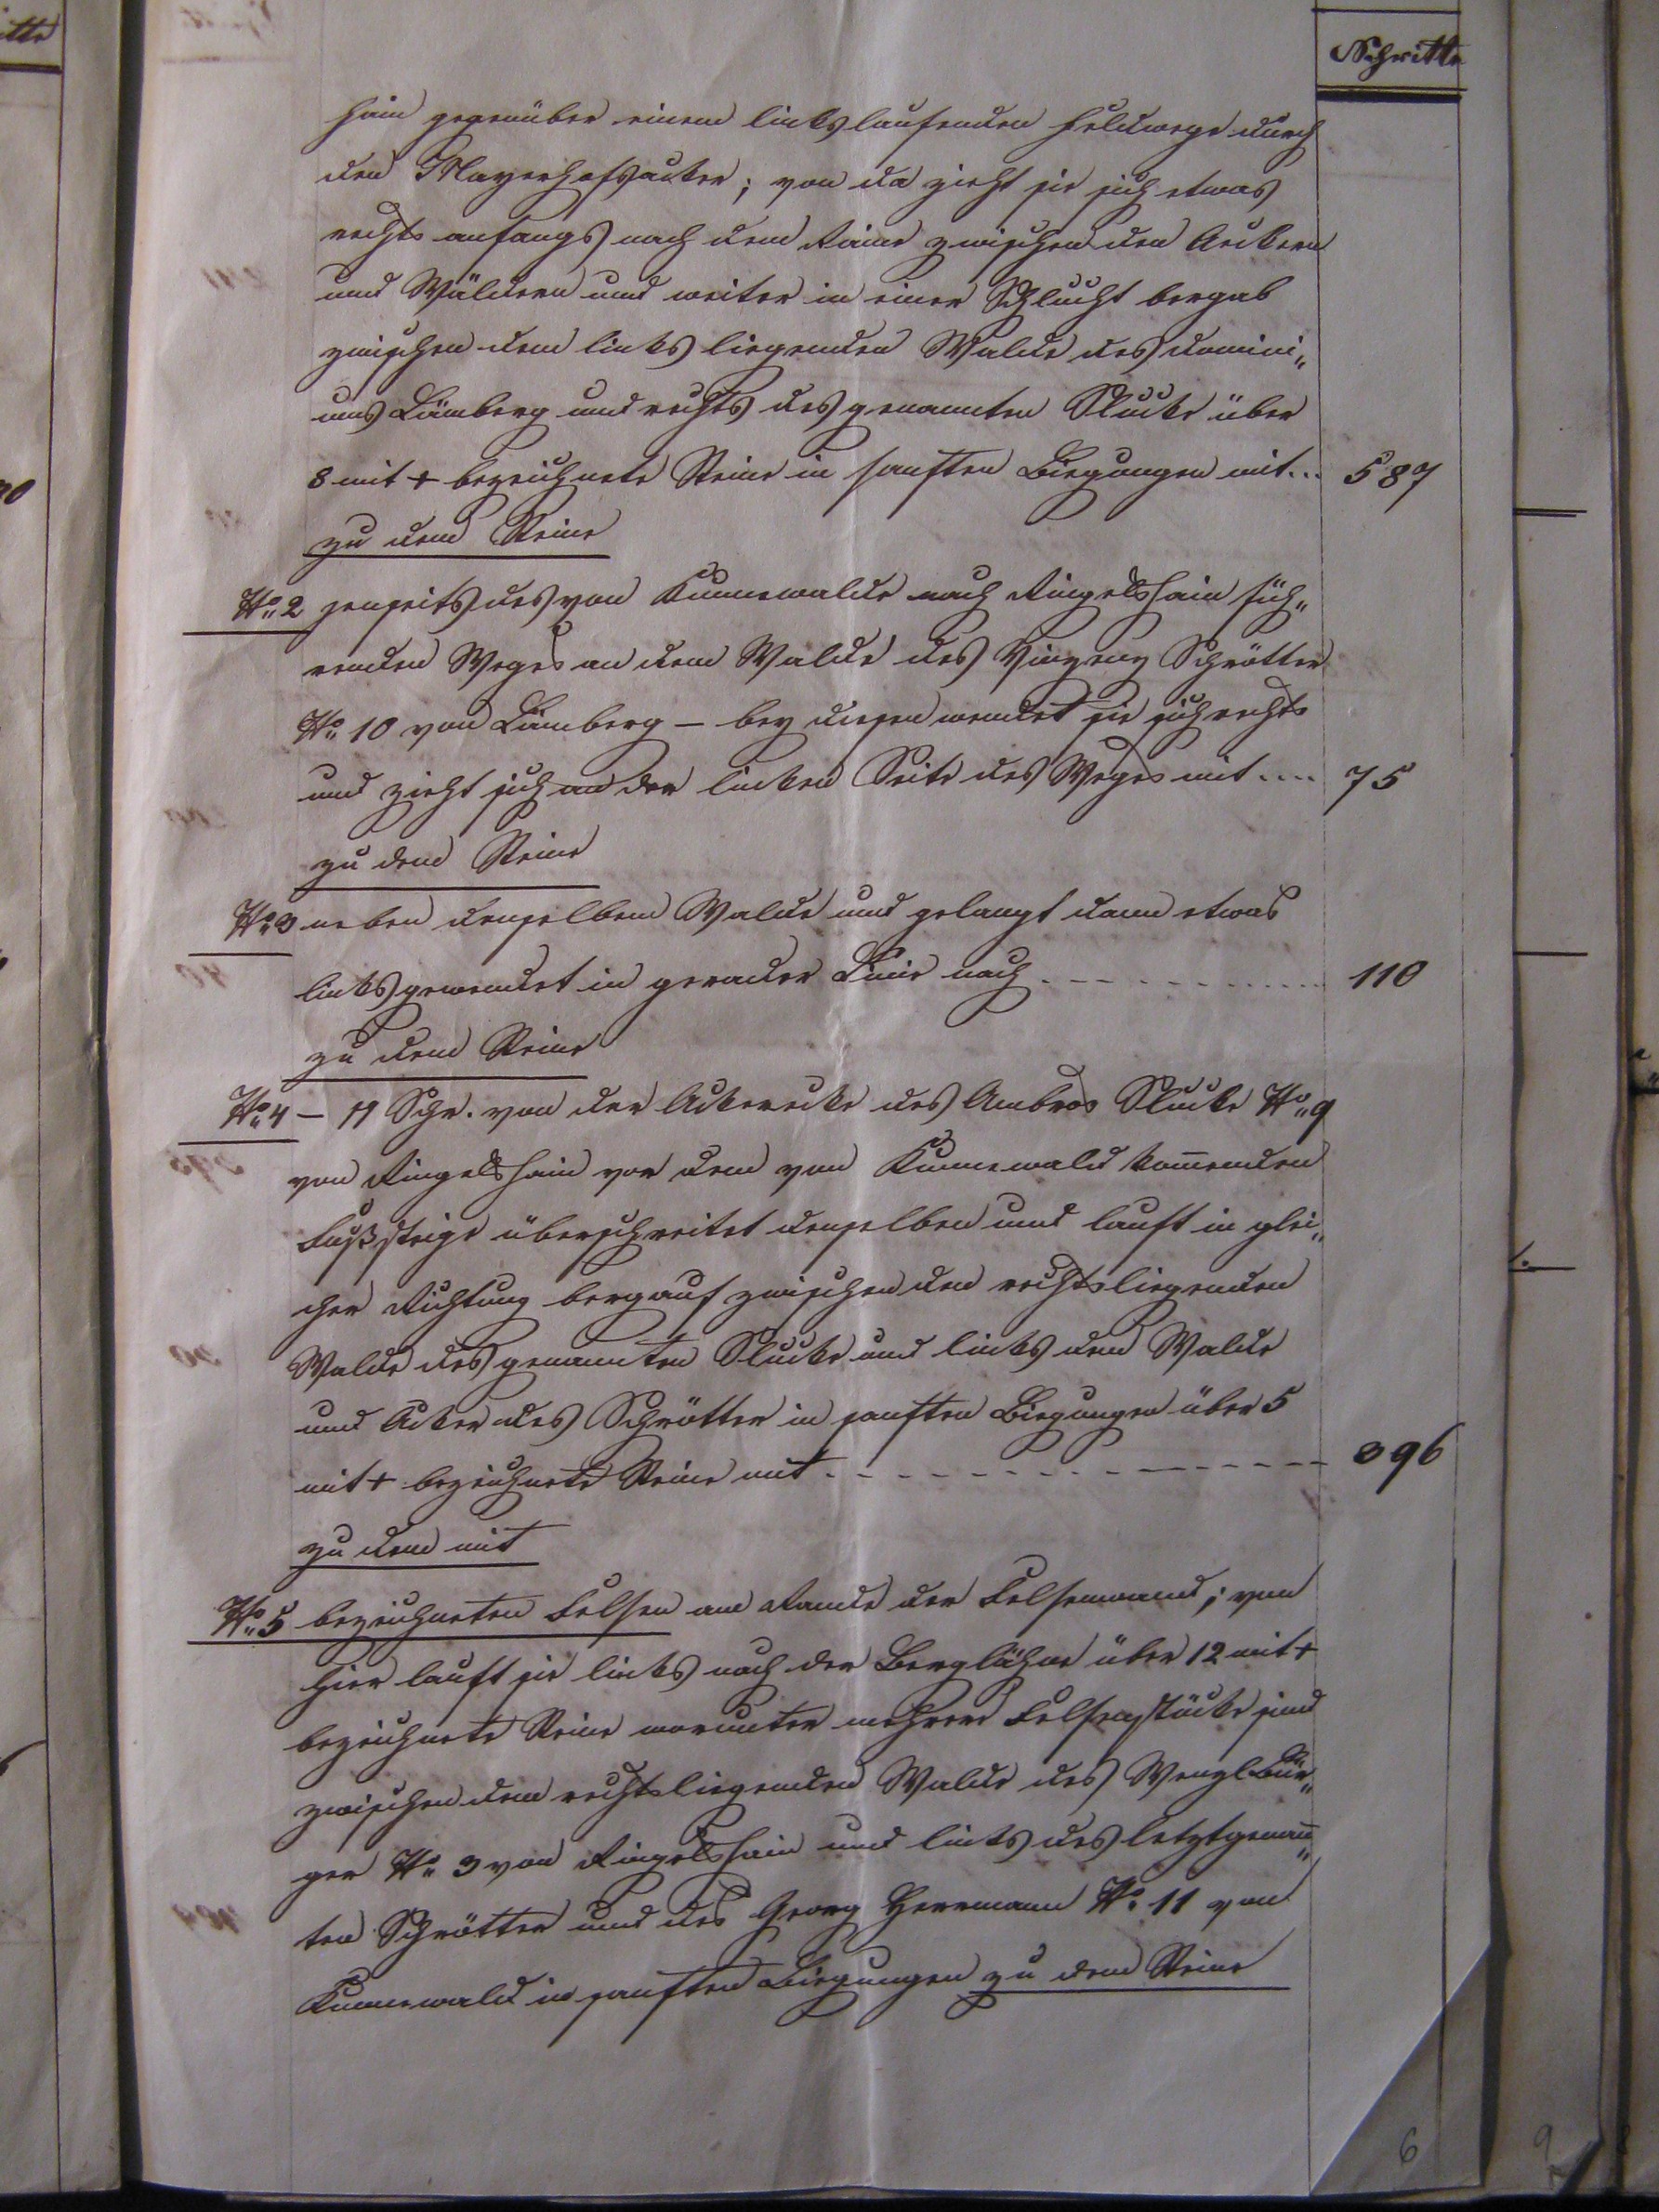 Schritte
hain gegenüber einem linkslaufenden Feldwege durch
den Mayerhofsacker; von da zieht sie sich etwas
rechts anfangs nach dem Raine zwischen den Aeckern
und Wäldern und weiter in einer Schlucht bergab
zwischen dem links liegenden Walde des domini„
ums Lämberg und rechts des genannten Slucke über
8 mit + bezeichnete Steine in sanften Biegungen mit... 587
zu dem Steine
No 2 jenseits des von Kunnewalde nach Ringelshain füh„
renden Weges an dem Walde des Vinzenz Schrötter
No 10 von Lämberg – bey diesen wendet sie sich rechts
und zieht sich an der linken Seite des Weges mit.... 75
zu dem Steine
No 3 neben denselben Walde und gelangt dann etwas
links gewendet in gerader Linie nach . . . . . . 110
zu dem Steine
No 4 – 11 Schr. von der Ackerecke des Ambros Slucke No 9
von Ringelshain vor dem von Kunnewald kom̅enden
Fußsteige überschreitet denselben und lauft in glei„
cher Richtung bergauf zwischen den rechtsliegenden
Walde des genannten Slucke und links dem Walde
und Acker des Schrötter in sanften Biegungen über 5
mit + bezeichnete Steine mit . . . . . . 396
zu dem mit
No 5 bezeichneten Felsen am Rande der Felsenwand; von
hier lauft sie links nach der Berglähne über 12 mit +
bezeichnete Steine worunter mehrere Felsenstücke sind
zwischen dem rechtsliegenden Walde des Wenzl Bür„
ger No 3 von Ringelshain und links des letztgenan̅„
ten Schrötter und des Georg Herrmann No 11 von
Kunnewald in sanften Biegungen zu dem Steine
6